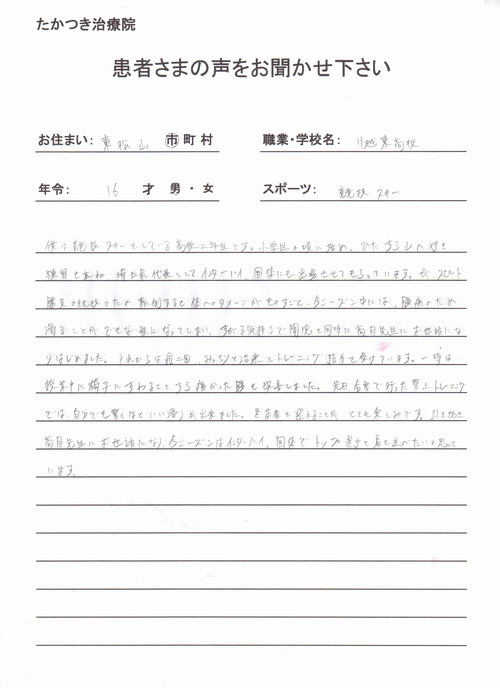 たかつき治療院
患者さまの声をお聞かせ下さい
お住まい: 東松山 市町村 職業・学校名: 川越東高校
年令: 16 才 男・女 スポーツ: 競技スキー
僕は競技スキーをしている高校二年生です。小学生の頃に始め、ひたすら山へ行き
練習を重ね 埼玉県代表としてインターハイ、国体にも出場させてもらっています。が、スピード
勝負の競技のため 転倒すると体へのダメージがものすごく、今シーズン中には、腰痛のため
滑ることができな になってしまい、 気持ちで 同時に高月先生にお世話にな
りはじめました。それからは月二回、みっちりと治療とトレーニング指導を受けています。一時は
授業中に椅子にすわることすら痛かった腰も改善しました。先日合宿で行った雪上トレーニング
では、自分でも驚くほどいい滑りが出来ました。 を迎えることが とても楽しみです。引き続き
高月先生にお世話になり、今シーズンはインターハイ、国体でトップ選手と肩を並べたいと思って
います。